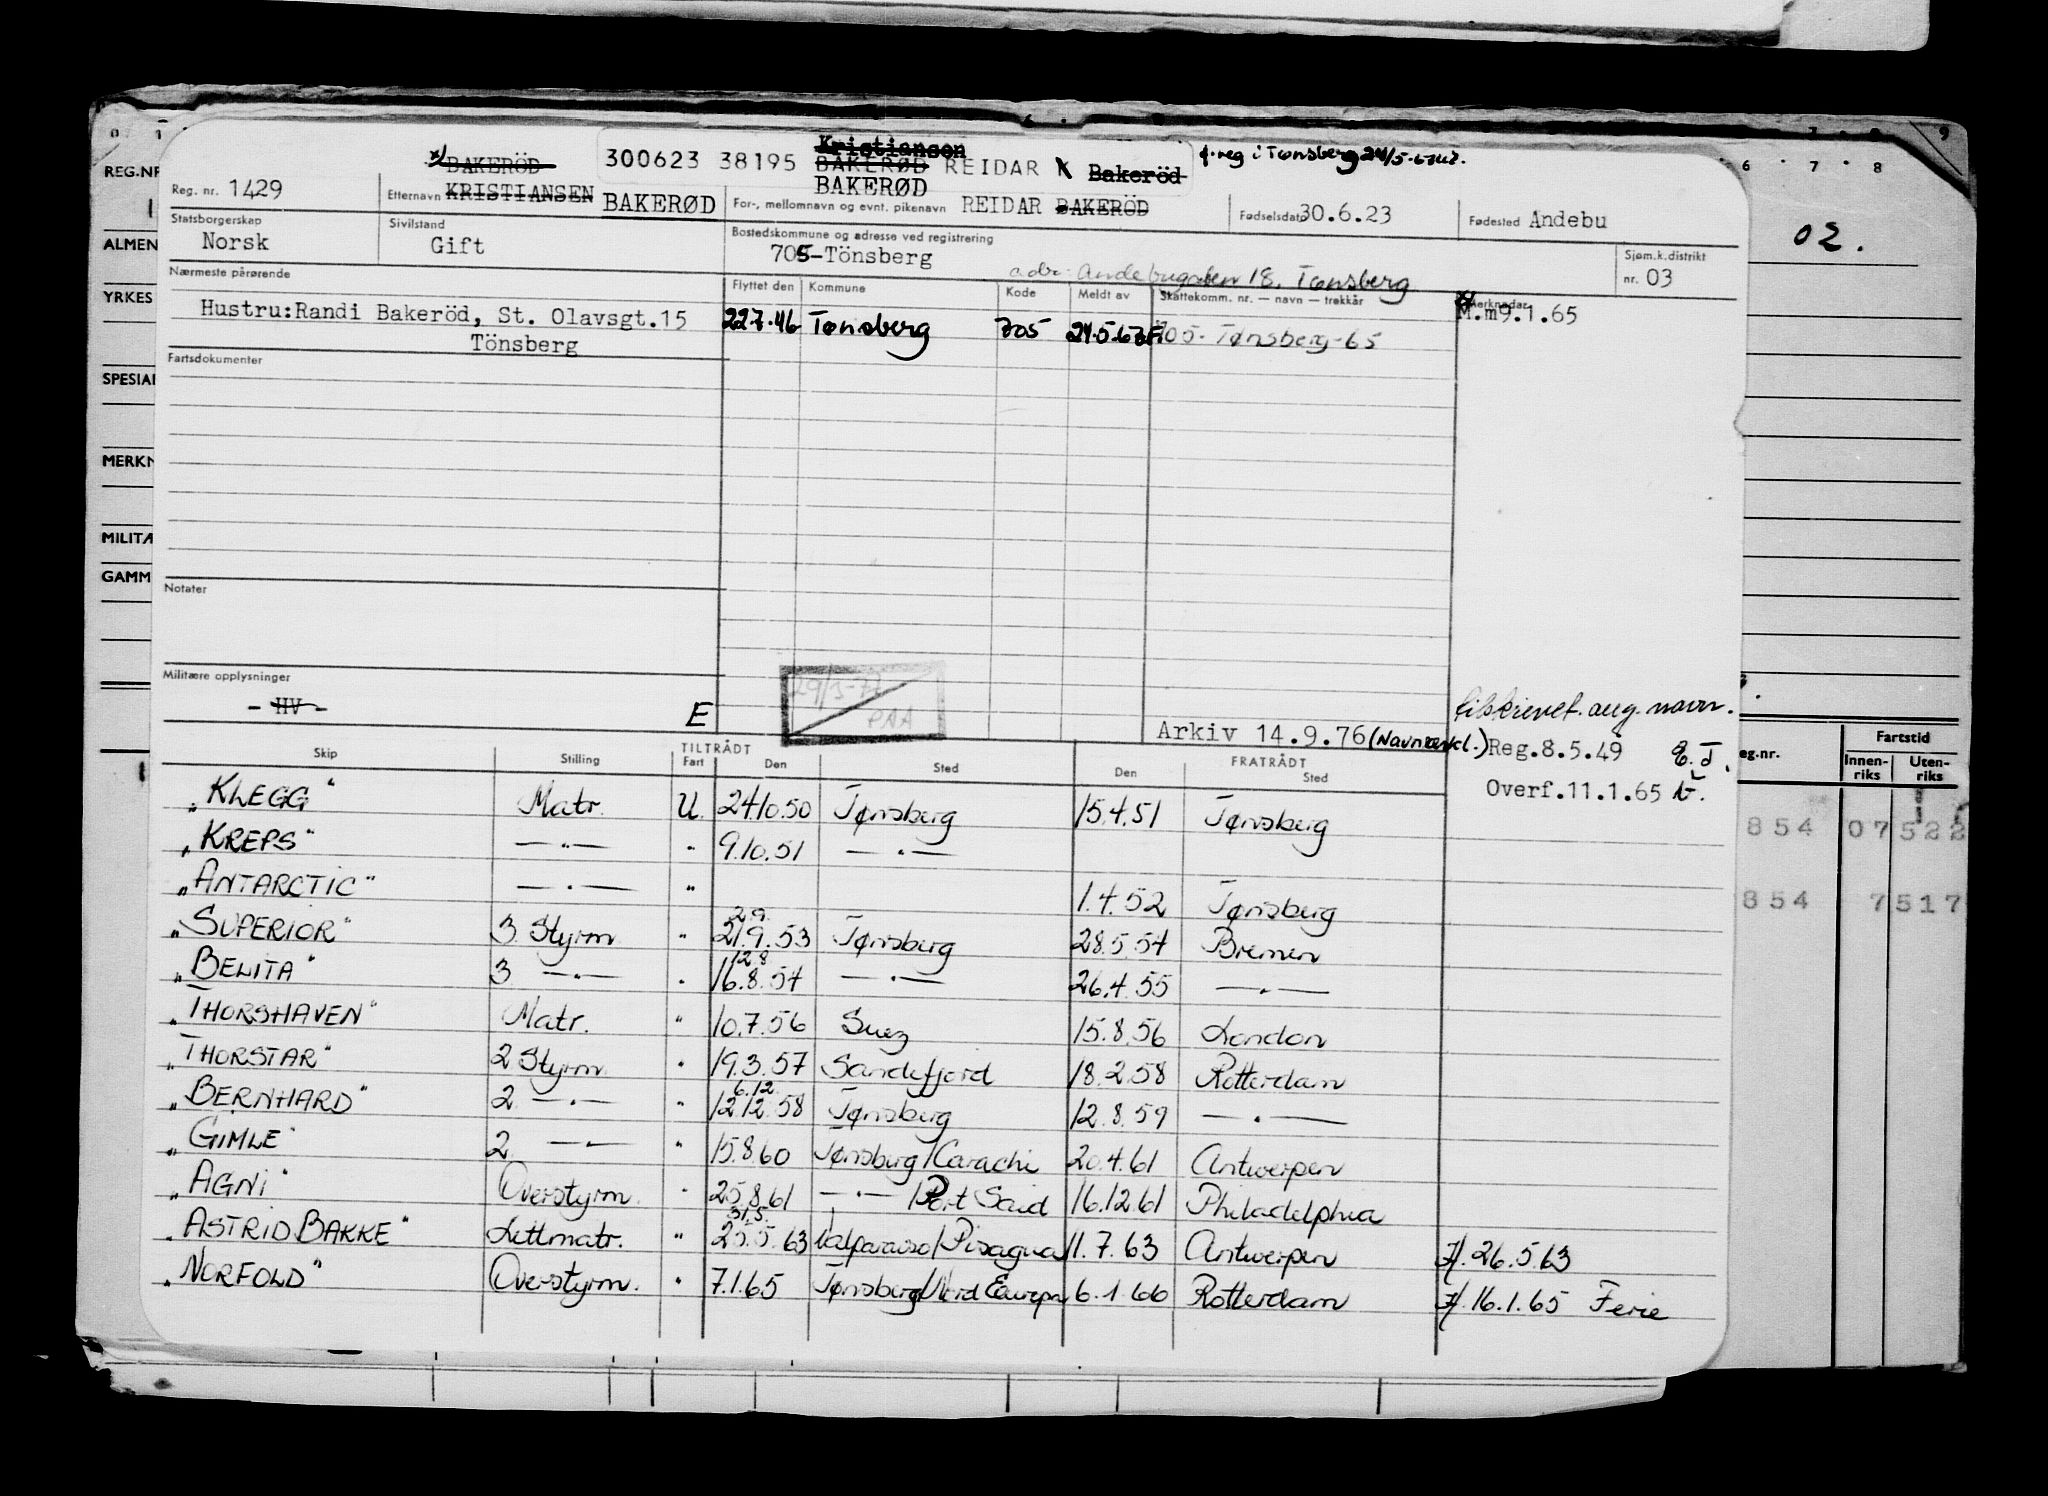 x/ BAKERÖD 300623 38195 Kristiansen BAKERØD REIDAR Bakeröd f.reg i Tønsberg 24/5-67
BAKERØD
Reg. nr. 1429 Etternavn KRISTIANSEN BAKERØD For-, mellomnavn og evnt. pikenavn REIDAR BAKERÖD Fødselsdato 30.6.23 Fødested Andebu
Statsborgerskap Norsk Sivilstand Gift Bostedskommune og adresse ved registrering 705-Tönsberg Sjøm.k.distrikt nr. 03
adr: Andebugaten 18, Tønsberg
Nærmeste pårørende Flyttet den Kommune Kode Meldt av Skattekomm. nr. — navn — trekkår Merknader
Hustru:Randi Bakeröd, St. Olavsgt.15 22.7.46 Tønsberg 705 24.5.67 705-Tønsberg-65 M.m9.1.65
Tönsberg
Fartsdokumenter
Notater
Militære opplysninger
- HV - E
29/3-77
PAA
Arkiv 14.9.76 Reg.8.5.49
Overf.11.1.65
Skip Stilling TILTRÅDT Fart Den Sted FRATRÅDT Den Sted
„KLEGG" Matr. U. 24.10.50 Tønsberg 15.4.51 Tønsberg
„KREPS" —"— " 9.10.51 —"—
„ANTARCTIC" —"— " 1.4.52 Tønsberg
29.
„SUPERIOR" 3. Styrm " 21.9.53 Tønsberg 28.5.54 Bremen
12.8
„BELITA" 3 —"— " 16.8.54 —"— 26.4.55 —"—
„THORSHAVEN" Matr. " 10.7.56 Suez 15.8.56 London
„THORSTAR" 2 Styrm " 19.3.57 Sandefjord 18.2.58 Rotterdam
6.12.
„BERNHARD" 2 —"— " 12.12.58 Tønsberg 12.8.59 —"—
„GIMLE" 2 —"— " 15.8.60 Tønsberg/Carachi 20.4.61 Antwerpen
„AGNI" Overstyrm. " 25.8.61 —"— /Port Said 16.12.61 Philadelphia
31.5.
„ASTRID BAKKE" Lettmatr. " 25.5.63 Valparaiso/Pisagua 11.7.63 Antwerpen x/.26.5.63
„NORFOLD" Overstyrm. " 7.1.65 Tønsberg/Nord Europa 6.1.66 Rotterdam x/.16.1.65 Ferie
REG.NR
ALMEN
YRKES
SPESIAL
MERKN
MILITÆ
GAMM
0 1 6 7 8 9
6 . 7 . 8
02.
eg.nr. Fartstid
Innenriks Utenriks
854 07 522
854 7 517